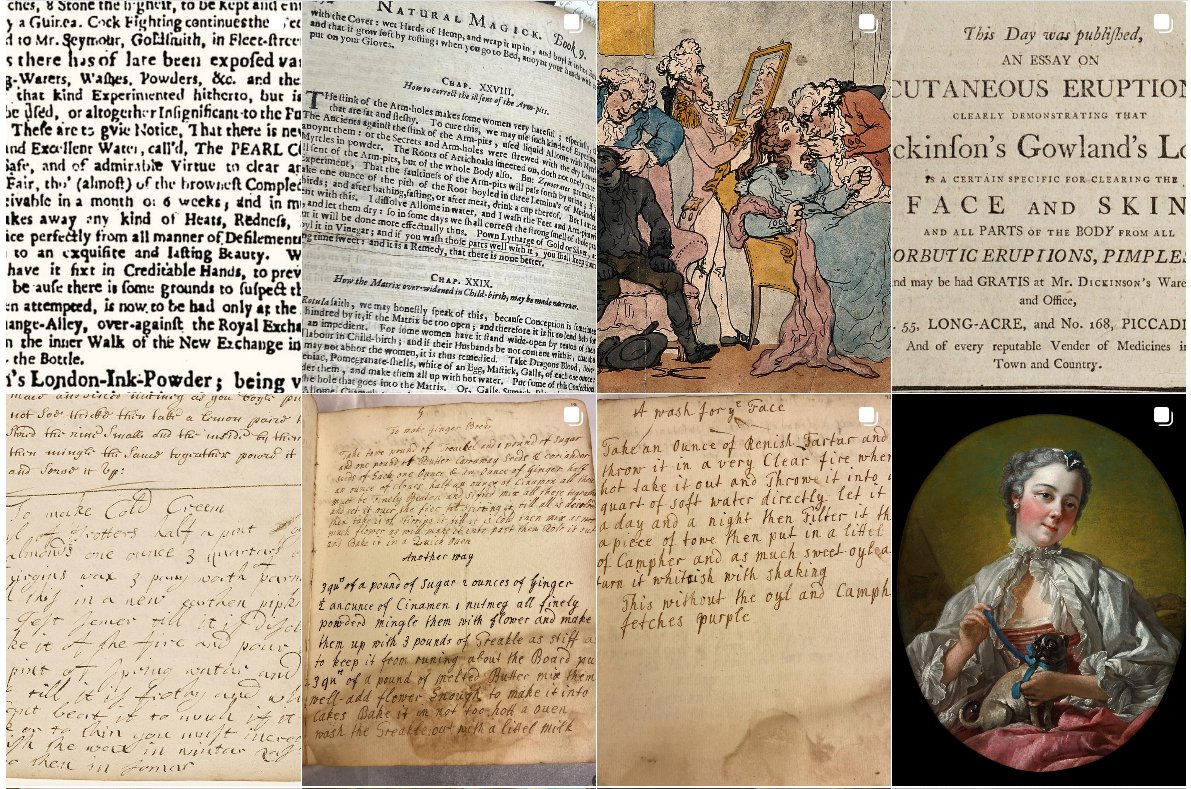 ches, 8 Stone the highest, to be kept and
y a Guinea. Cock Fighting continues the
d to Mr. Seymour, Goldsmith, in Fleet-stree
s there has of late been exposed va
g-Warers, Washes, Powders, &c. and the
that kind Experimented hitherto, but is
be used, or altogether Insignificant to the Pu
These are to gvie Notice, That there is nev
nd Excellent Water, call'd, The PEARL C
Safe, and of admirable Virtue to clear a
Fair, tho' (almost) of the brownest Complec
ceivable in a month or 6 weeks; and in m
kes away any kind of Heats, Redness,
ice perfectly from all manner of Defilement
to an exquisite and lasting Beauty. W
have it fixt in Creditable Hands, to prev
be ause there is some grounds to suspect th
en attempted, is now to be had only at the
ange-Alley, over-against the Royal Excha
n the inner Walk of the New Exchange in
the Bottle.
's London-Ink-Powder; being v
NATURAL MAGICK. Book 9.
with the Cover: wet Hards of Hemp, and wrap it up in, and boyl it in
and that it grow soft by rosting; when you go to Bed, anoynt your hands with
put on your Gloves.
CHAP. XXVIII.
How to correct the ill sent of the Arm-pits.
The stink of the Arm-holes makes some women very hateful; especially
that are fat and fleshy. To cure this, we may use such kind of Experiments
The Ancients against the stink of the Arm-pits, used liquid Allome with
anoynt them: or the Secrets and Arm-holes were strewed with the dry Leaves
Myrtles in powder. The Roots of Artichoaks smeered on, doth not onely cure
ill sent of the Arm-pits, but of the whole Body also. But Zenocrates
experiment, That the faultiness of the Arm-pits will pass forth by urine; if
take one ounce of the pith of the Root boyled in three Hemina's of Muskadel
thirds; and after bathing, fasting, or after meat, drink a cup thereof. But I
nt with this. I dissolve Allome in water, and I wash the Feet and Arm-pits
and let them dry: so in some days we shall correct the strong smell of those
t it will be done more effectually thus. Pown Lytharge of Gold or Silver,
yl it in Vinegar; and if you wash those parts well with it, you shall keep
ng time sweet: and it is a Remedy, that there is none better.
CHAP. XXIX.
How the Matrix over-widened in Child-birth, may be made narrower.
Rotula saith, we may honestly speak of this, because Conception is sometimes
hindred by it, if the Matrix be too open; and therefore it is fit to lend
an impediment. For some women have it stand wide open by reason of
labour in Child-birth; and if their Husbands be not content with it, that
may not abhor the women, it is thus remedied. Take Dragons Blood,
Pomegranate-shells, white of an Egg, Mastick, Galls, of each an ounce
them, and make them all up with hot water. Put some of this Confection
the hole that goes into the Matrix. Or, Galls,
This Day was published,
AN ESSAY ON
CUTANEOUS ERUPTION
CLEARLY DEMONSTRATING THAT
ckinson's Gowland's Lo
IS A CERTAIN SPECIFIC FOR CLEARING THE
FACE AND SKIN
AND ALL PARTS OF THE BODY FROM ALL
ORBUTIC ERUPTIONS, PIMPLES
nd may be had GRATIS at Mr. DICKINSON's Ware
and Office,
55, LONG-ACRE, and No. 168, PICCADI
And of every reputable Vender of Medicines in
Town and Country.
not soe thicke then take a lemon
then mingle the sauce togeather
and serve it up:
To make Cold Creem
Trotters half a pint
almonds one ounce 3 quarters
virgins wax 3 peny worth
this in a new earthen pipki
Lest simer till it
ke it of the fire and pour
pint of Spring water and
till it is frothy and
beat it to much if it
or to thin you must
the wax in winter
To make ginger Bread
Take two pound of Treakel and a pound of sugar
and one pound of Butter Carraway Seeds & coriander
seeds of Each one Ounce & an Ounce of Ginger half
an ounce of cloves half an ounce of Cinamon all these
must be finely Beaten and Sifted mix all these together
and Bake it in a Quick Oven
Another way
3 qrs of a pound of sugar 2 ounces of ginger
½ an ounce of Cinamen 1 nutmeg all finely
powdered mingle them with flower and make
them up with 3 pounds of Treakle as stiff a
to keep it from runing about the Board
3 qrs of a pound of melted Butter mix them
well add flower Enough to make it into
Cakes Bake it in not too hot a oven
wash the Treakle out with a littel milk
A wash for ye Face
Take an Ounce of Renish Tartar and
throw it in a very Clear fire when
hot take it out and Throw it into a
quart of soft water directly let it
a day and a night then Filter it th
a piece of towe then put in a littel
of Campher and as much sweet oyle a
turn it whitish with shaking
This without the oyl and Camph
fetches purple